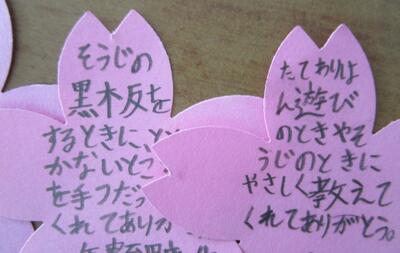 そうじの
黒板を
するときに、と
かないとこ
を手つだっ
くれてありが
たてわりは
ん遊び
のときやそ
うじのときに
やさしく教えて
くれてありがとう。